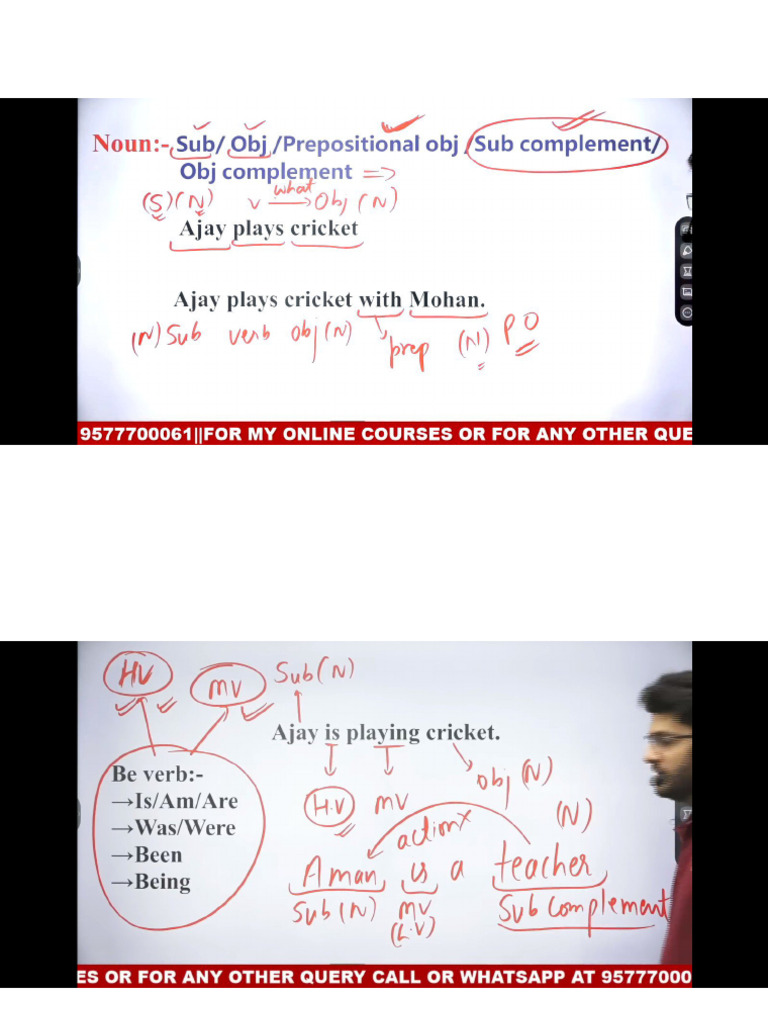 Noun:- Sub/ Obj /Prepositional obj /Sub complement/
Obj complement =>
(S)(N) V what → Obj (N)
Ajay plays cricket
Ajay plays cricket with Mohan.
(N) Sub verb obj (N) prep (N) PO
9577700061||FOR MY ONLINE COURSES OR FOR ANY OTHER QUE
HV MV Sub (N)
Ajay is playing cricket.
Be verb:-
→Is/Am/Are
→Was/Were
→Been
→Being
H.V MV obj (N)
action× (N)
Aman is a teacher
Sub (N) MV Sub Complement
(L.V)
ES OR FOR ANY OTHER QUERY CALL OR WHATSAPP AT 95777000